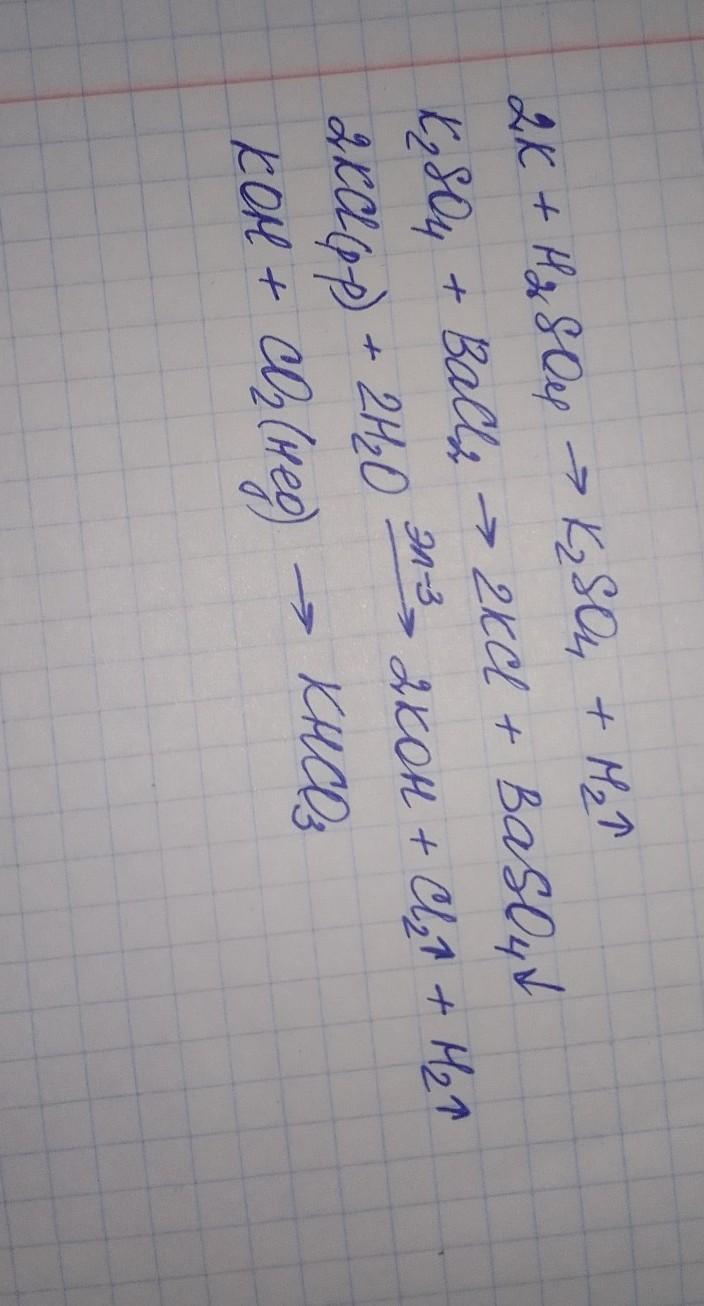 2K + H₂SO₄ → K₂SO₄ + H₂↑
K₂SO₄ + BaCl₂ → 2KCl + BaSO₄↓
2KCl(р-р) + 2H₂O эл-з → 2KOH + Cl₂↑ + H₂↑
KOH + CO₂(нед) → KHCO₃